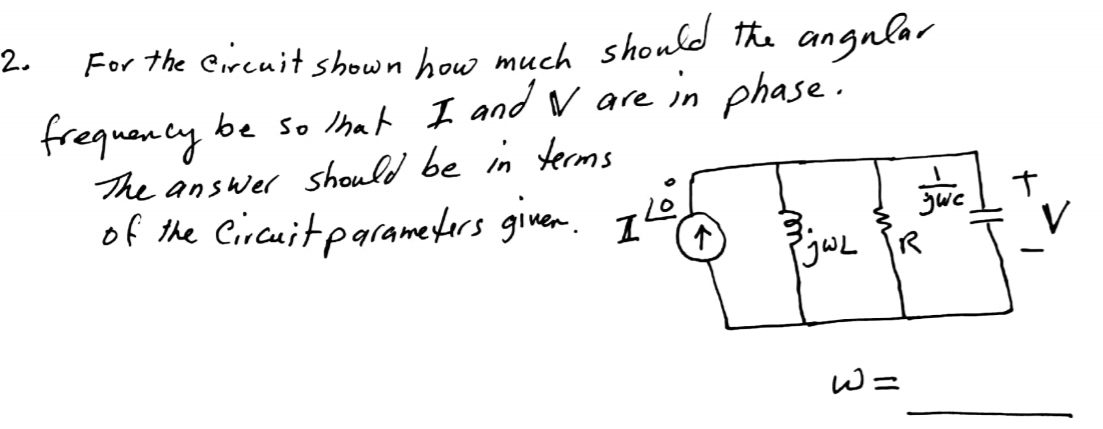 2. For the circuit shown how much should the angular
frequency be so that I and V are in phase.
The answer should be in terms
of the Circuit parameters given.
I∠0°
jωL
R
1/jωc
+
V
−
ω = ____